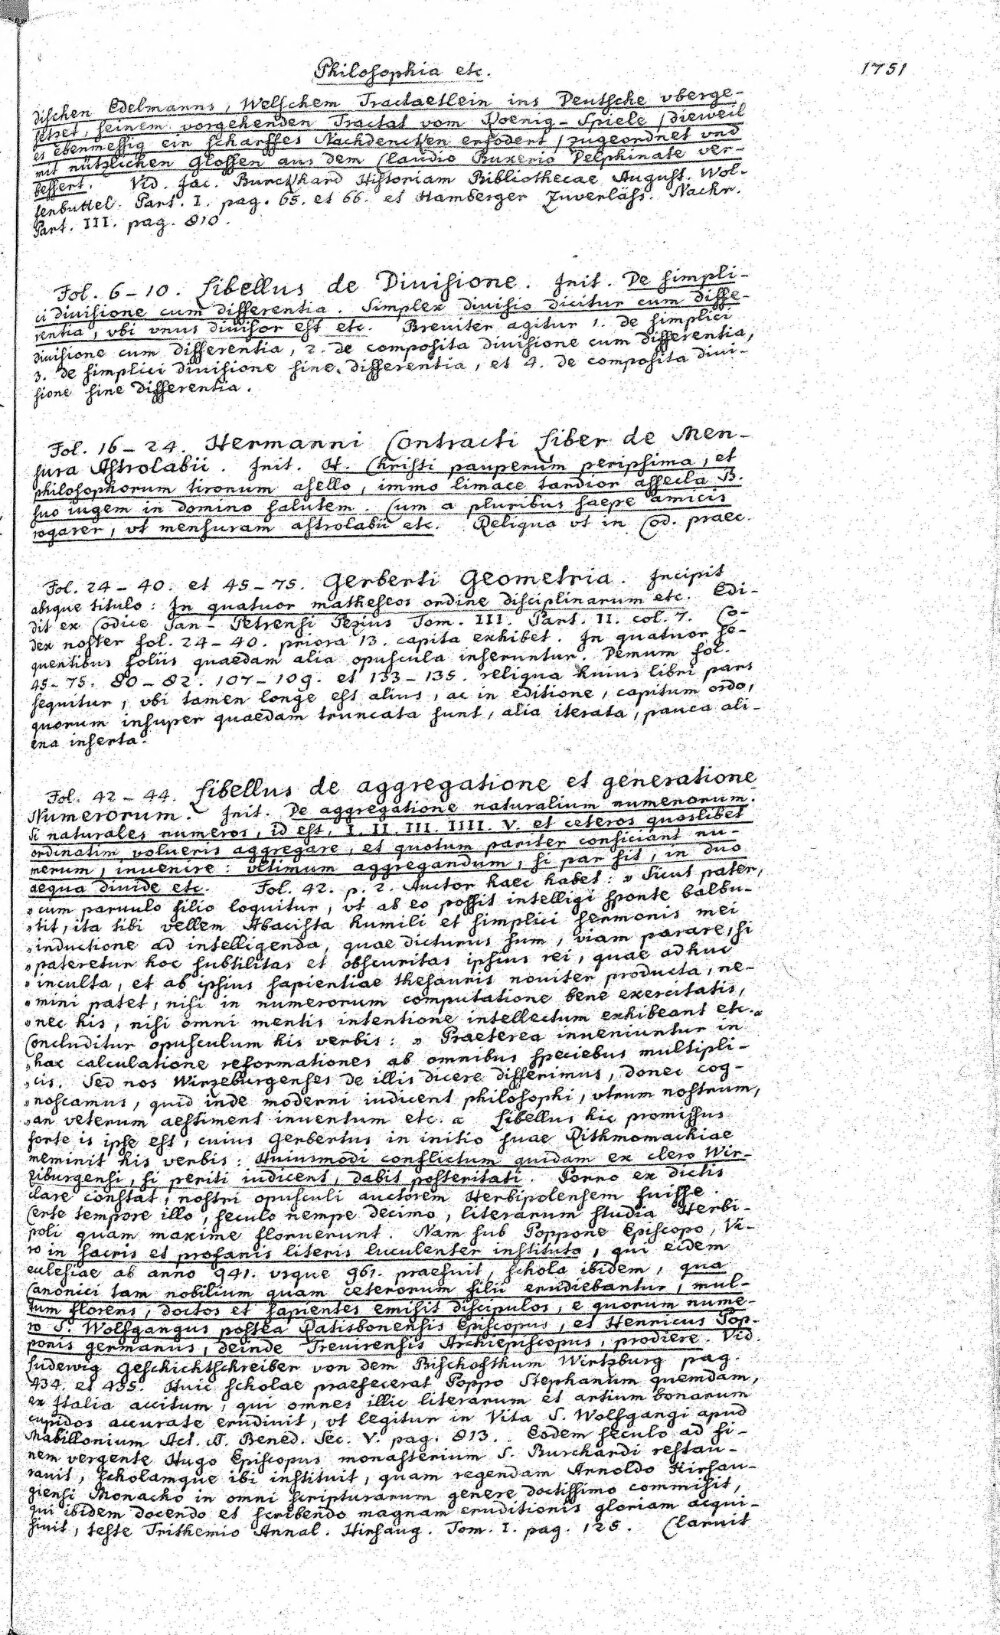 Philosophia etc.
1751
dischen Edelmanns, Welschem Tractaetlein ins Deutsche vberge-
setzet, seinem vorgehenden Tractat vom Koenig-Spiele /dieweil
es ebenmessig ein scharffes Nachdencken erfodert /zugeordnet vnd
mit nützlichen Glossen aus dem Claudio Buxerio Delphinate ver-
bessert. Vid. Jac. Burckhard Historiam Bibliothecae August. Wol-
fenbuttel. Part. I. pag. 65. et 66. et Hamberger Zuverläss. Nachr.
Part. III. pag. 810.
Fol. 6-10. Libellus de Divisione. Init. De simpli-
ci divisione cum differentia. Simplex divisio dicitur cum diffe-
rentia, vbi vnus divisor est etc. Breviter agitur 1. de simplici
divisione cum differentia, 2. de composita divisione cum differentia,
3. de simplici divisione sine differentia, et 4. de composita divi-
sione sine differentia.
Fol. 16-24. Hermanni Contracti Liber de Men-
sura Astrolabii. Init. H. Christi pauperum peripsima, et
philosophorum tironum asello, immo limace tardior assecla B.
suo iugem in domino salutem. Cum a pluribus saepe amicis
rogarer, vt mensuram astrolabii etc. Reliqua vt in Cod. praec.
Fol. 24-40. et 45-75. Gerberti Geometria. Incipit
absque titulo: In quatuor matheseos ordine disciplinarum etc. Edi-
dit ex Codice San-Petrensi Pezius Tom. III. Part. II. col. 7. Co-
dex noster fol. 24-40. priora 13. capita exhibet. In quatuor se-
quentibus foliis quaedam alia opuscula inseruntur. Demum fol.
45-75. 80-82. 107-109. et 133-135. reliqua huius libri pars
sequitur, vbi tamen longe est alius, ac in editione, capitum ordo,
quorum insuper quaedam truncata sunt, alia iterata, pauca ali-
ena inserta.
Fol. 42-44. Libellus de aggregatione et generatione
Numerorum. Init. De aggregatione naturalium numerorum.
Si naturales numeros, id est, I. II. III. IIII. V. et ceteros quoslibet
ordinatim volueris aggregare, et quotum pariter conficiant nu-
merum, invenire: vltimum aggregandum, si par sit, in duo
aequa divide etc. Fol. 42. p. 2. Auctor haec habet: » Sicut pater,
» cum parvulo filio loquitur, vt ab eo possit intelligi sponte balbu-
» tit, ita tibi vellem Abacista humili et simplici sermonis mei
» inductione ad intelligenda, quae dicturus sum, viam parare, si
» pateretur hoc subtilitas et obscuritas ipsius rei, quae adhuc
» inculta, et ab ipsius sapientiae thesauris noviter producta, ne-
» mini patet, nisi in numerorum computatione bene exercitatis,
» nec his, nisi omni mentis intentione intellectum exhibeant etc. «
Concluditur opusculum his verbis: » Praeterea inveniuntur in
» hac calculatione reformationes ab omnibus speciebus multipli-
» cis. Sed nos Wirzeburgenses de illis dicere differimus, donec cog-
» noscamus, quid inde moderni iudicent philosophi, vtrum nostrum,
» an veterum aestiment inventum etc. « Libellus hic promissus
forte is ipse est, cuius Gerbertus in initio suae Rithmomachiae
meminit his verbis: Huiusmodi conflictum quidam ex clero Wir-
ziburgensi, si periti iudicent, dabit posteritati. Porro ex dictis
clare constat, nostri opusculi auctorem Herbipolensem fuisse.
Certe tempore illo, seculo nempe decimo, literarum studia Herbi-
poli quam maxime floruerunt. Nam sub Poppone Episcopo, Vi-
ro in sacris et profanis literis luculenter instituto, qui eidem
ecclesiae ab anno 941. vsque 961. praefuit, schola ibidem, qua
Canonici tam nobilium quam ceterorum filii erudiebantur, mul-
tum florens, doctos et sapientes emisit discipulos, e quorum nume-
ro S. Wolfgangus postea Ratisbonensis Episcopus, et Henricus Pop-
ponis germanus, deinde Trevirensis Archiepiscopus, prodiere. Vid.
Ludewig Geschichtschreiber von dem Bischofsthum Wirtzburg pag.
434. et 435. Huic scholae praefecerat Poppo Stephanum quemdam,
ex Italia accitum, qui omnes illic literarum et artium bonarum
cupidos accurate erudivit, vt legitur in Vita S. Wolfgangi apud
Mabillonium Act. S. Bened. Sec. V. pag. 813. Eodem seculo ad fi-
nem vergente Hugo Episcopus monasterium S. Burchardi restau-
ravit, scholamque ibi instituit, quam regendam Arnoldo Hirsau-
giensi Monacho in omni scripturarum genere doctissimo commisit,
qui ibidem docendo et scribendo magnam eruditionis gloriam acqui-
sivit, teste Trithemio Annal. Hirsaug. Tom. I. pag. 125. Claruit